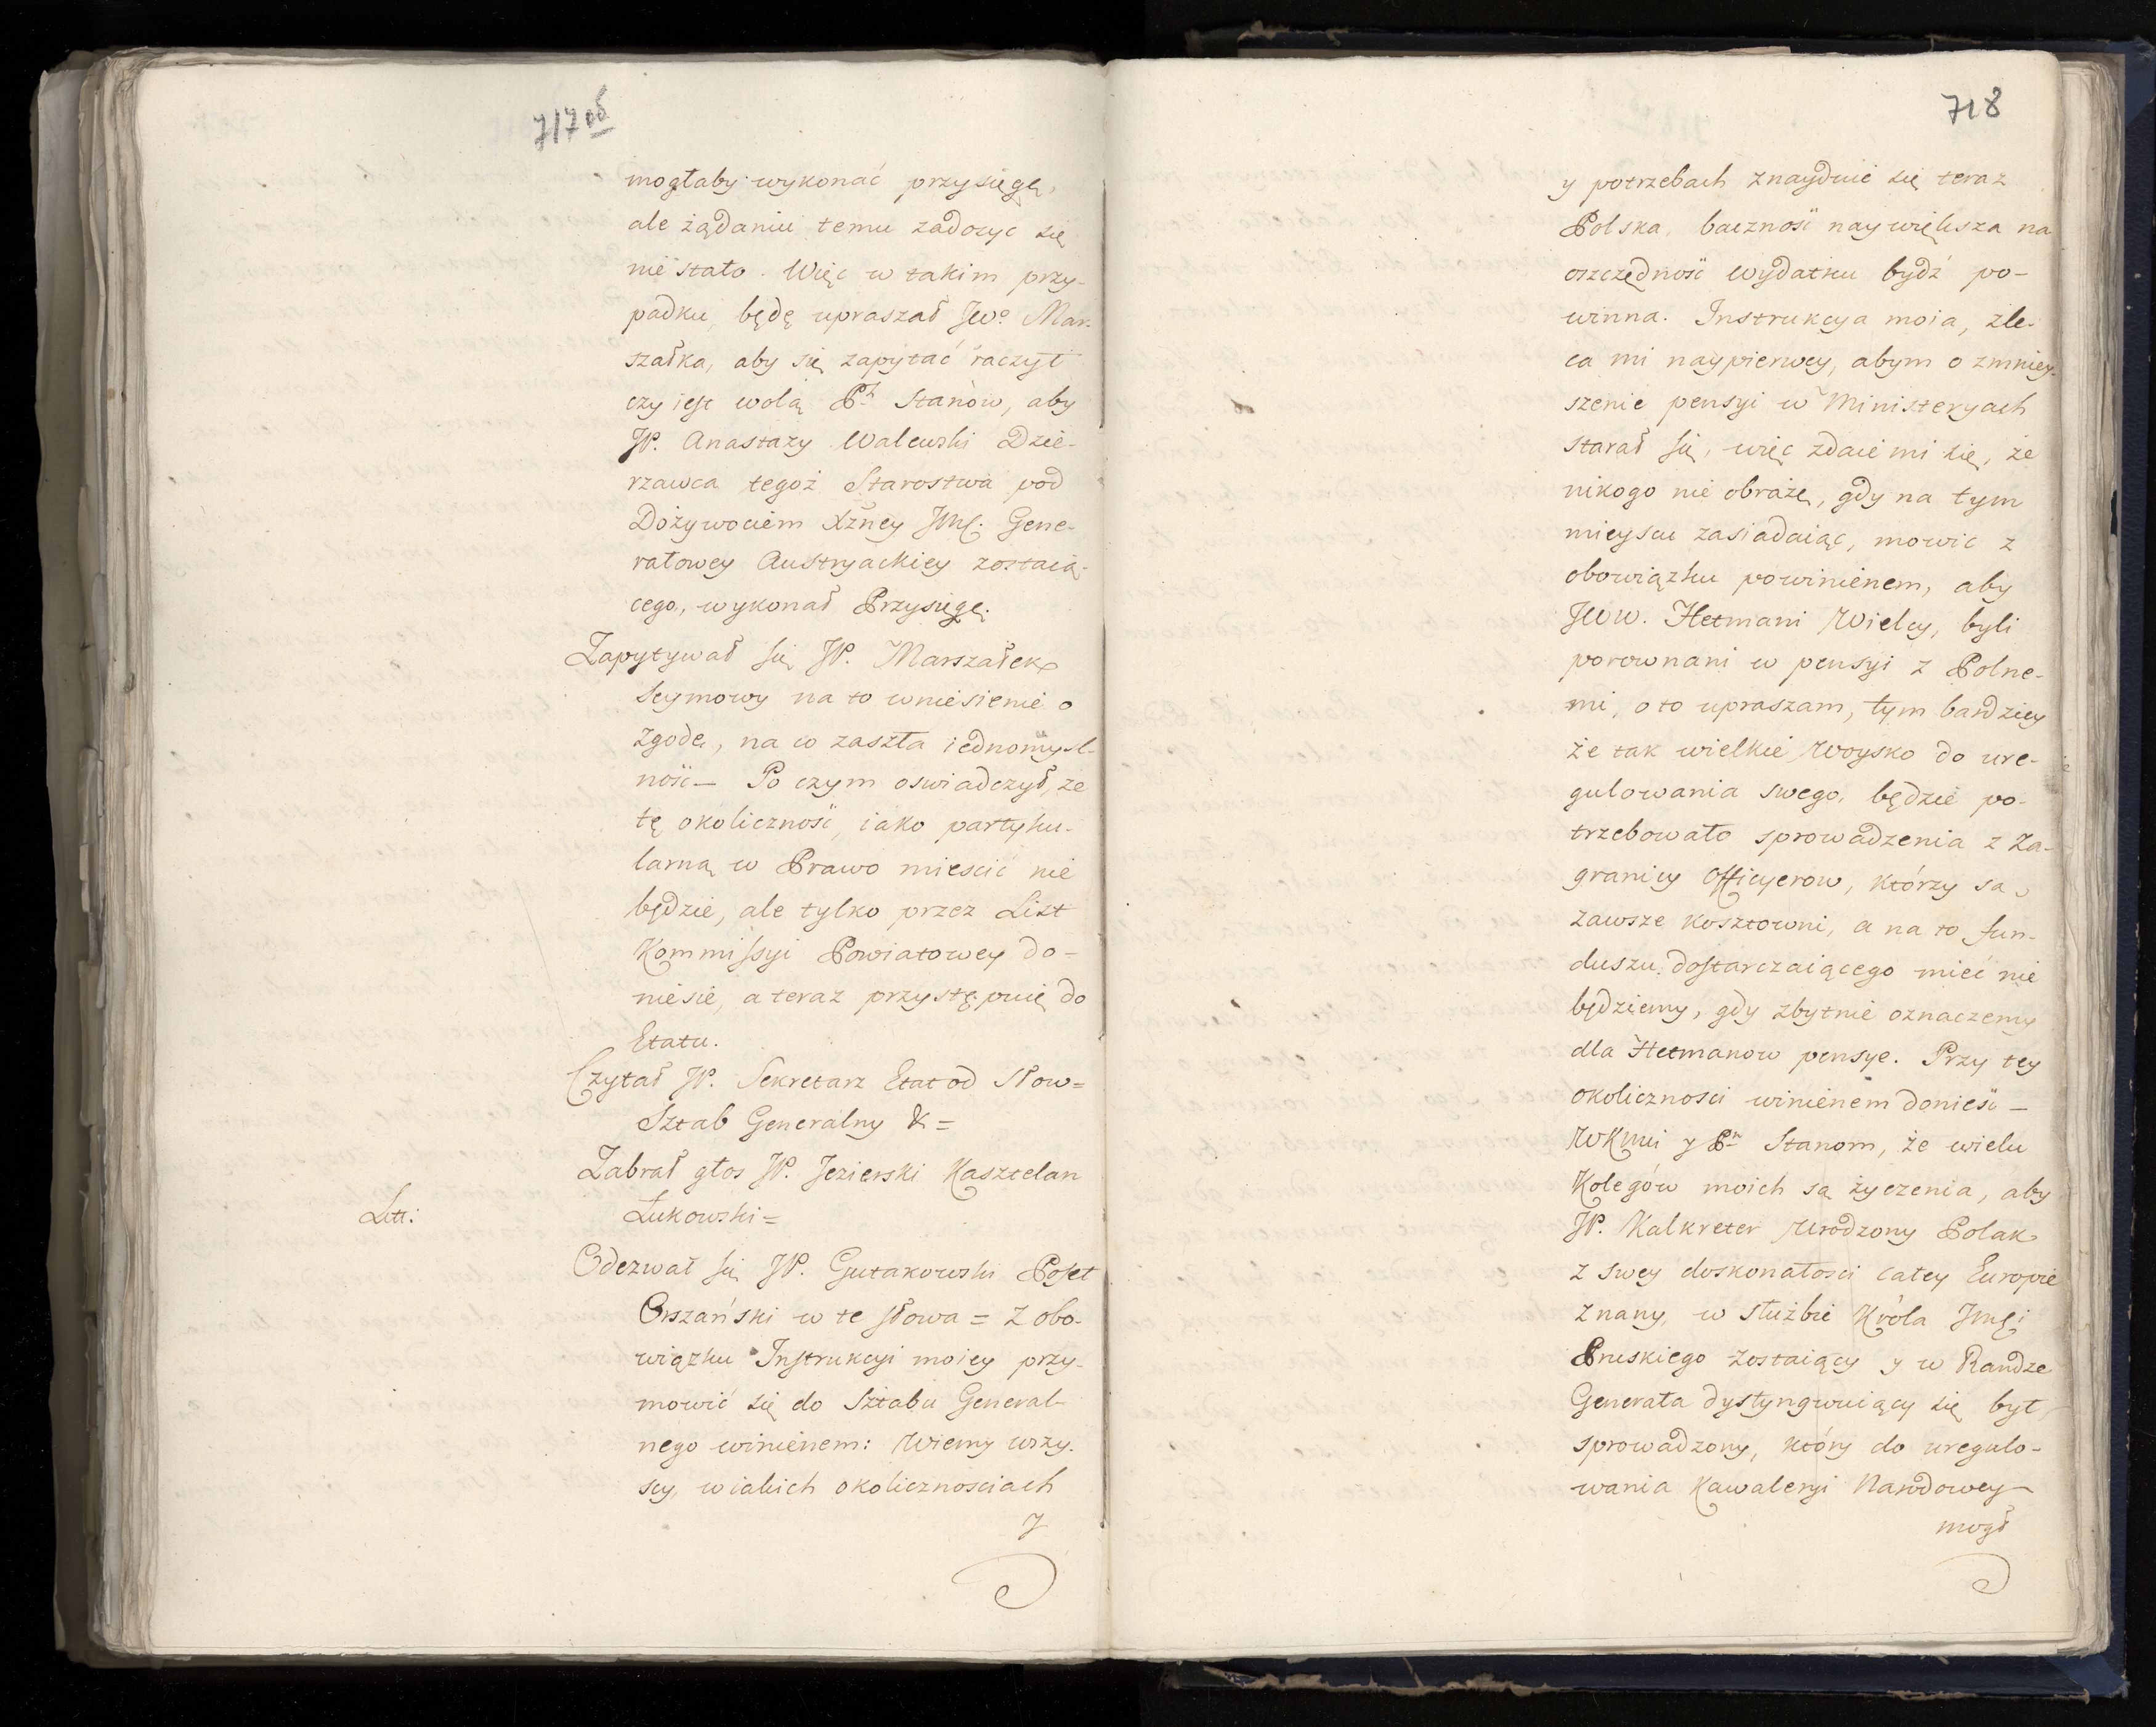 717 об
mogłaby wykonać przysięgę,
ale żądaniu temu zadosyc się
nie stało. Więc w takim przy-
padku, będę upraszał JWo Mar-
szałka, aby się zapytać raczył
czy iest wolą Pch Stanów, aby
JP. Anastazy Walewski Dzie-
rzawca tegoż Starostwa pod
Dożywociem Xżney Jmć. Gene-
rałowey Austryackiey zostaią-
cego, wykonał Przysięgę.
Zapytywał się JP. Marszałek
Seymowy na to wniesienie o
zgodę, na co zaszła iednomyśl-
ność — Po czym oswiadczył, że
tę okoliczność, iako partyku-
larną w Prawo miescić nie
będzie, ale tylko przez List
Kommissyi Powiatowey do-
niesie, a teraz przystępuię do
Etatu.
Czytał JP. Sekretarz Etat od Słow=
Sztab Generalny &=
Zabrał głos JP. Jezierski Kasztelan
Litt:
Łukowski=
Odezwał się JP. Gutakowski Poseł
Orszański w te słowa = Z obo-
wiązku Instrukcyi moiey przy-
mowić się do Sztabu General-
nego winienem: Wiemy wszy-
scy, w iakich okolicznosciach
y
718
y potrzebach znayduie się teraz
Polska, baczność naywiększa na
oszczędność wydatku bydź po-
winna. Instrukcya moia, zle-
ca mi naypierwey, abym o zmniey-
szenie pensyi w Ministeryach
starał się, więc zdaie mi się, że
nikogo nie obrażę, gdy na tym
mieyscu zasiadaiąc, mowic z
obowiązku powinienem, aby
JWW. Hetmani Wielcy, byli
porownani w pensyi z Polne-
mi, o to upraszam, tym bardziey
że tak wielkie Woysko do ure-
gulowania swego, będzie po-
trzebowało sprowadzenia z Za-
granicy Officyerow, którzy są
zawsze kosztowni, a na to fun-
duszu dostarczaiącego mieć nie
będziemy, gdy zbytnie oznaczemy
dla Hetmanow pensye. Przy tey
okolicznosci winienem donieść —
WKMci y Pm Stanom, że wielu
Kolegów moich są życzenia, aby
JP. Kalkreter Urodzony Polak
z swey doskonałosci całey Europie
znany, w służbie Króla Jmci
Pruskiego zostaiący y w Randze
Generała dystyngwuiący się był
sprowadzony, który do uregulo-
wania Kawaleryi Narodowey
mogł